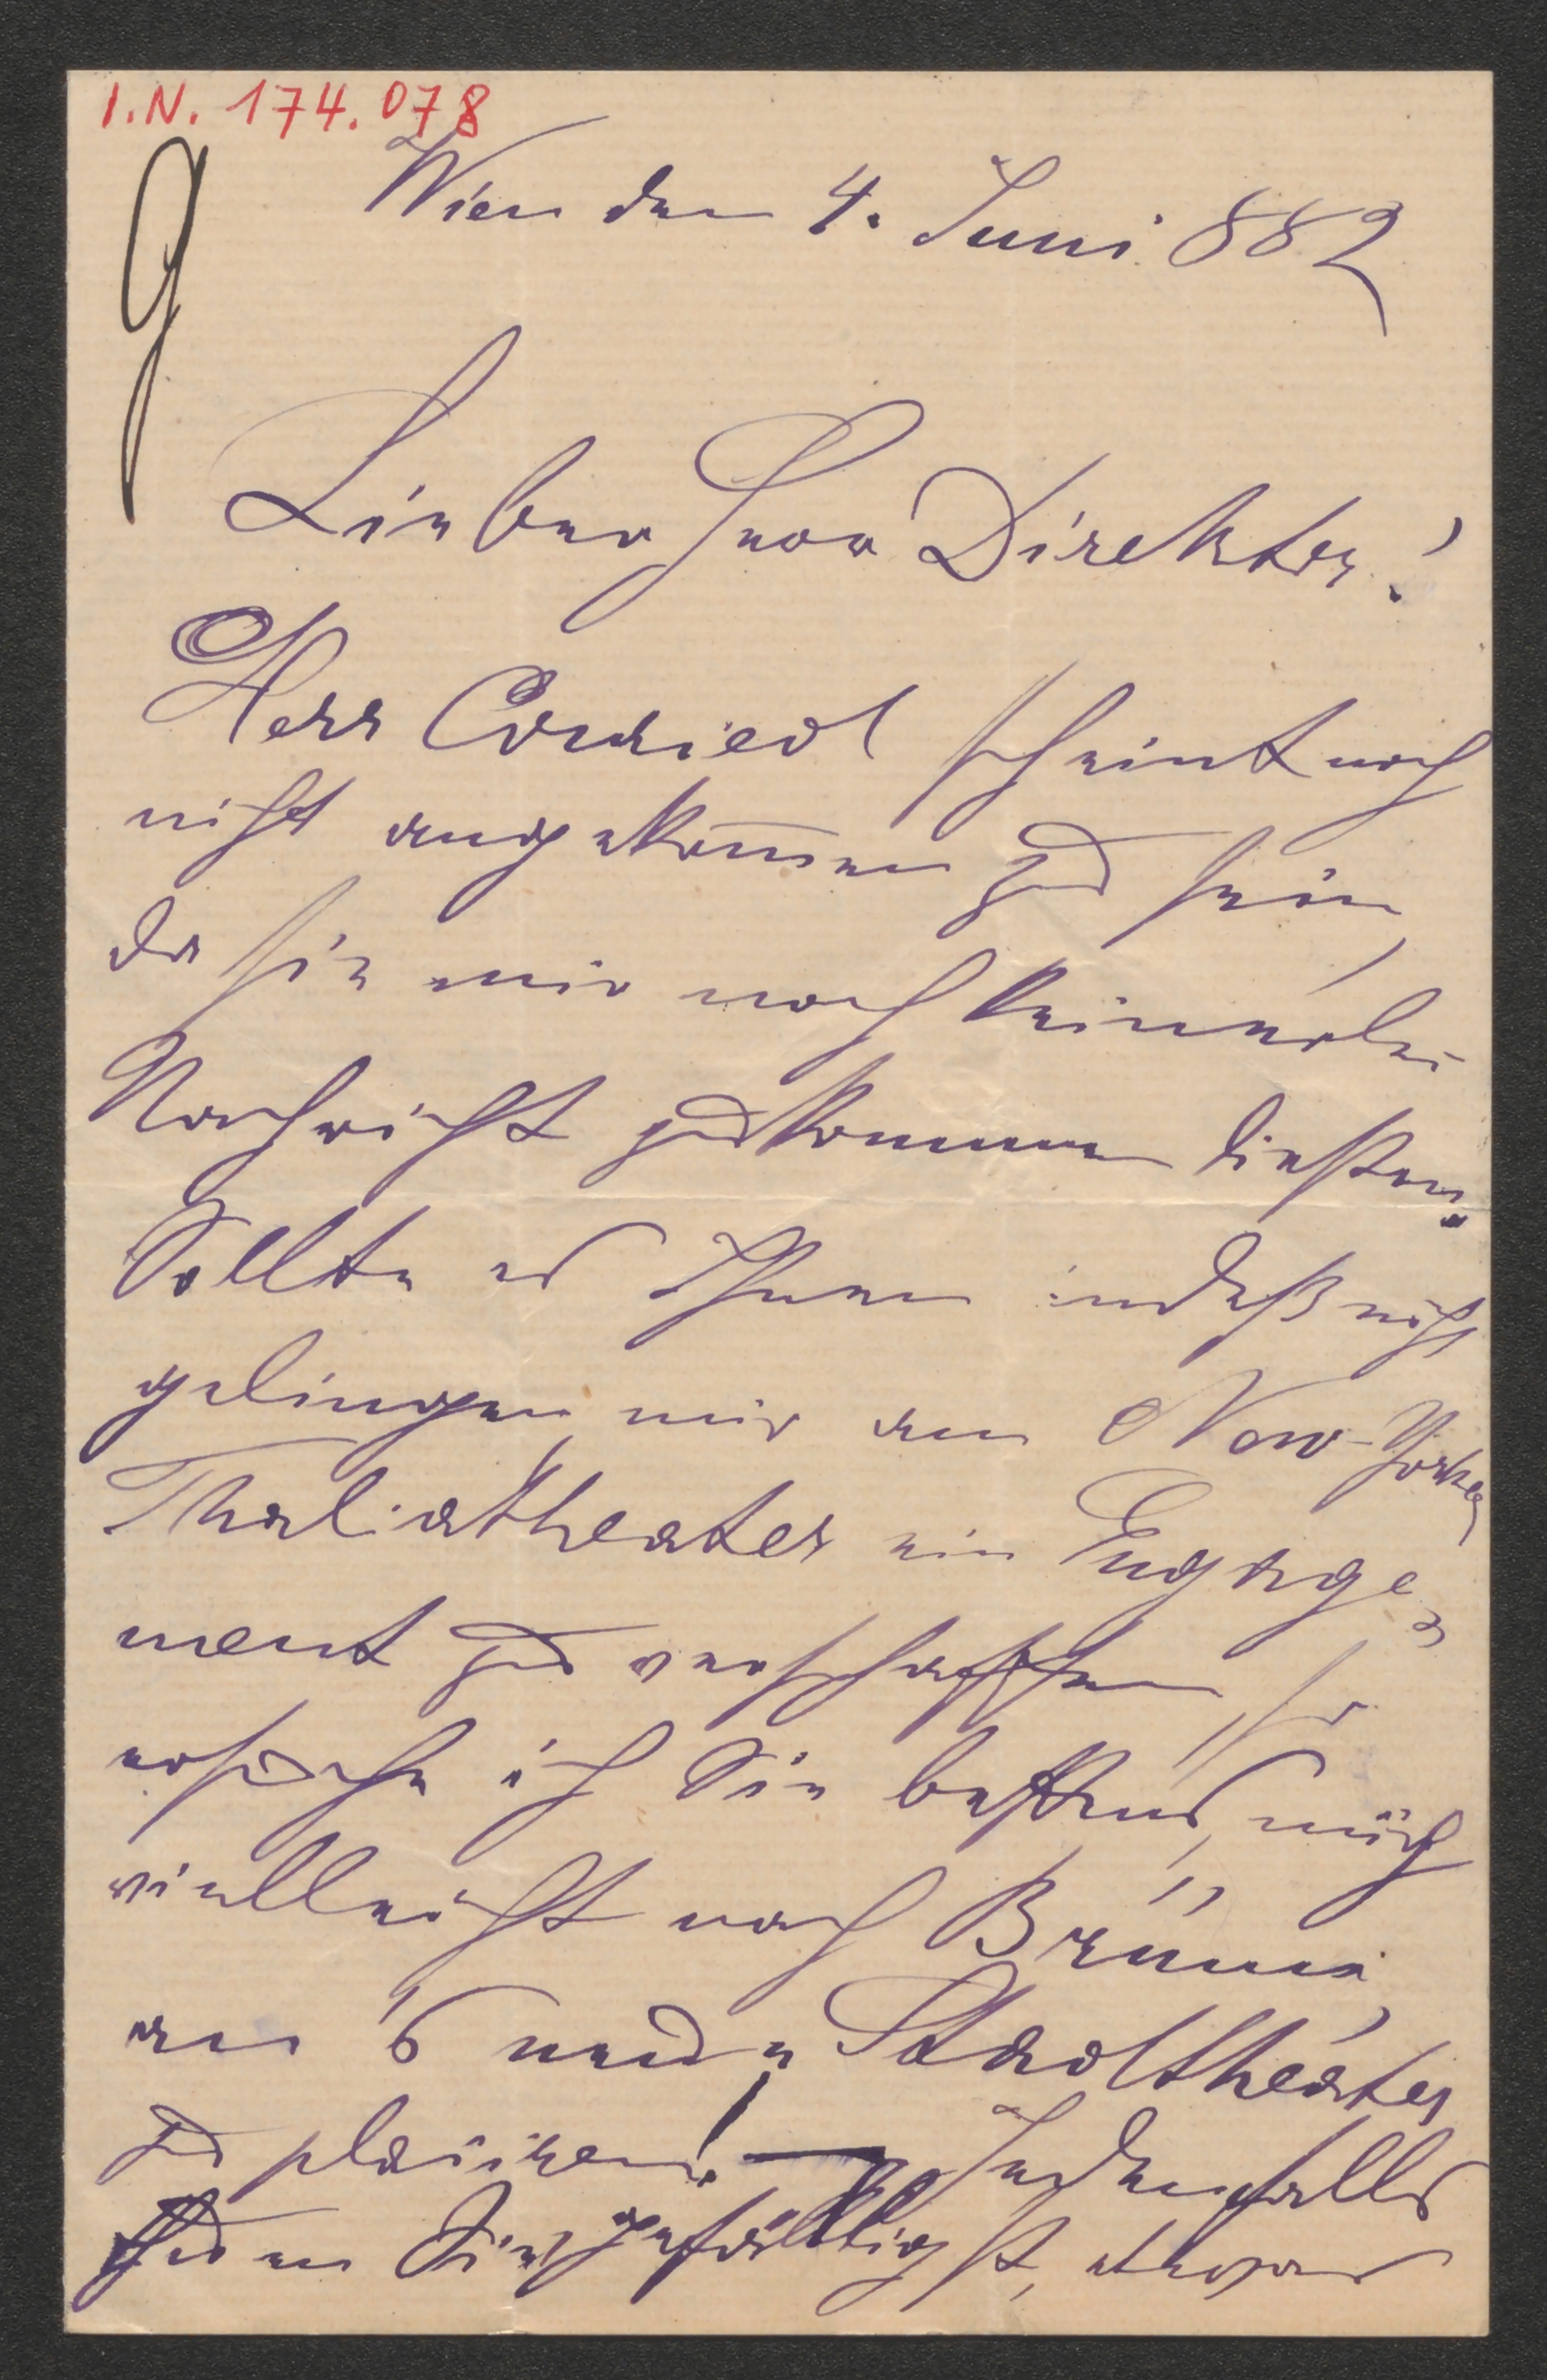 I.N. 174.078
Wien den 4. Juni 882
Lieber Herr Direktor!
Herr Conried scheint noch
nicht angekom̅en zu sein,
da Sie mir noch keinerlei
Nachricht zukommen ließen.
Sollte es Ihnen indeß nicht
gelingen, mir am New-Yorker
Thaliatheater ein Engage-
ment zu verschaffen, so
ersuche ich Sie bestens, mich
vielleicht nach Brünn,
an's neue Stadttheater
zu placiren! — Jedenfalls
thuen Sie gefälligst, etwas